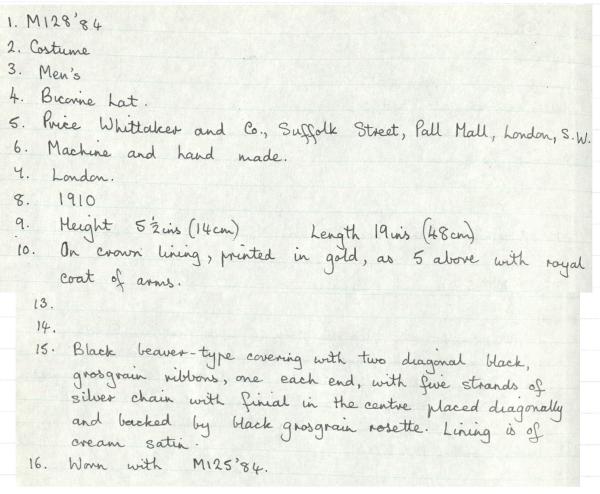 1. M128'84
2. Costume
3. Men's
4. Bicorne hat.
5. Price Whittaker and Co., Suffolk Street, Pall Mall, London, S.W.
6. Machine and hand made.
7. London.
8. 1910
9. Height 5½ins (14cm) Length 19ins (48cm)
10. On crown lining, printed in gold, as 5 above with royal
coat of arms.
13.
14.
15. Black beaver-type covering with two diagonal black,
grosgrain ribbons, one each end, with five strands of
silver chain with finial in the centre placed diagonally
and backed by black grosgrain rosette. Lining is of
cream satin.
16. Worn with M125'84.